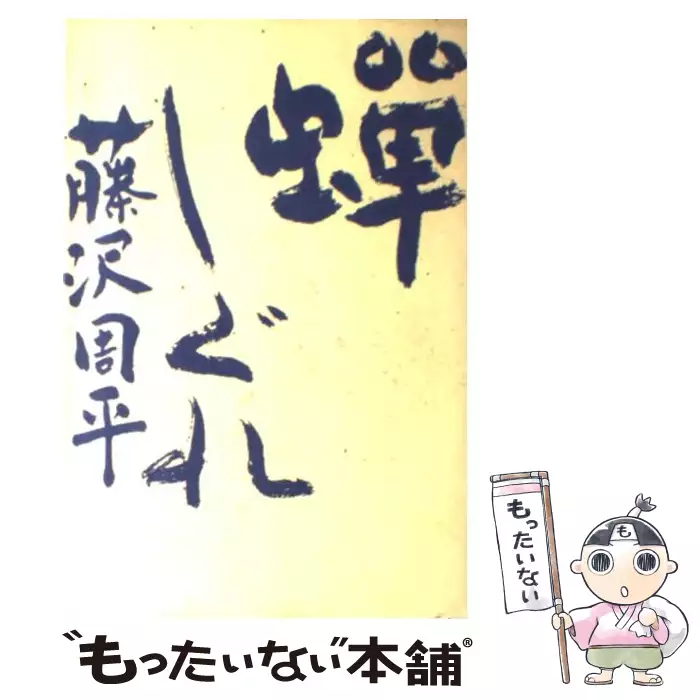 蟬しぐれ
藤沢周平
もったいない
も
"もったいない"本舗®